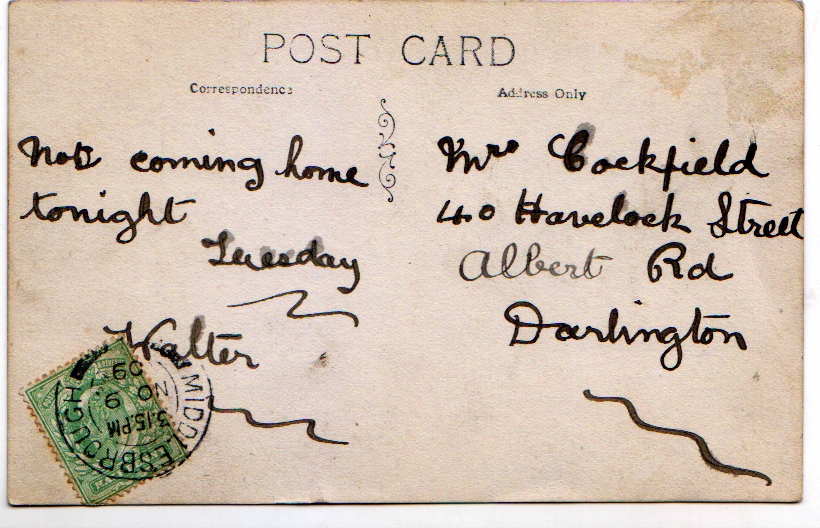 POST CARD
Correspondence
Address Only
Not coming home
tonight
Tuesday
Walter
Mrs Cockfield
40 Havelock Street
Albert Rd
Darlington
MIDDLESBROUGH
3.15 PM
NO 9
09